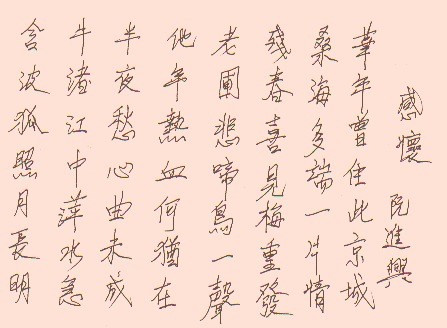 感懷
阮進興
華年曾住此京城
桑海多端一片情
殘春喜見梅重發
老圃悲啼鳥一聲
他年熱血何猶在
半夜愁心曲未成
牛渚江中萍水急
含波狐照月長明